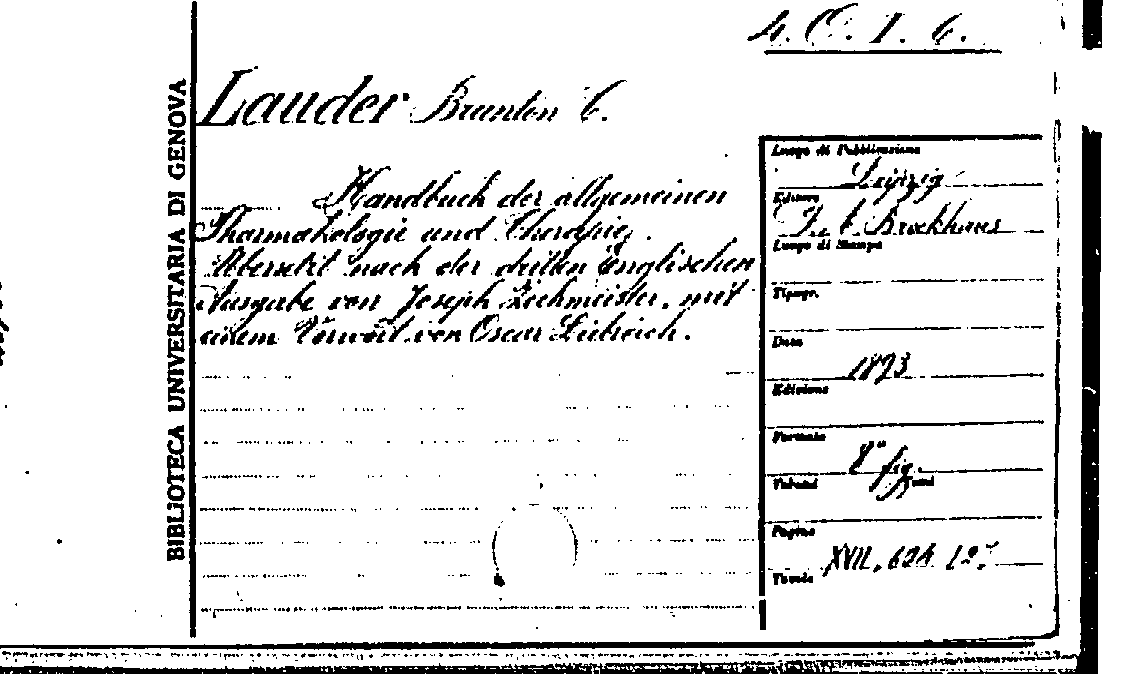 4. O. I. 6.
BIBLIOTECA UNIVERSITARIA DI GENOVA
Lauder Brunton C.
Handbuch der allgemeinen
Pharmakologie und Therapie.
Übersetzt nach der dritten Englischen
Ausgabe von Joseph Zechmeister, mit
einem Vorwort von Oscar Liebreich.
Luogo di Pubblicazione
Leipzig
Editore
F. A. Brockhaus
Luogo di Stampa
Tipogr.
Data
1893
Edizione
Formato
8° fig.
Volumi Tomi
Pagine
XVII, 624
Tavole